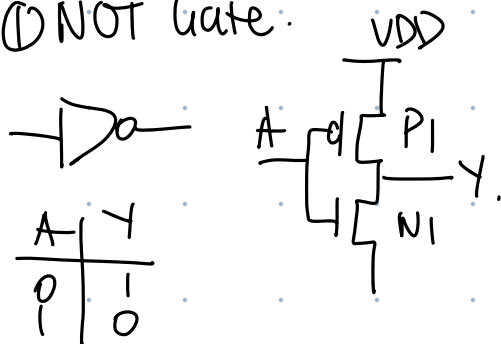 ① NOT Gate.
VDD
A
P1
Y.
N1
A Y
0 1
1 0